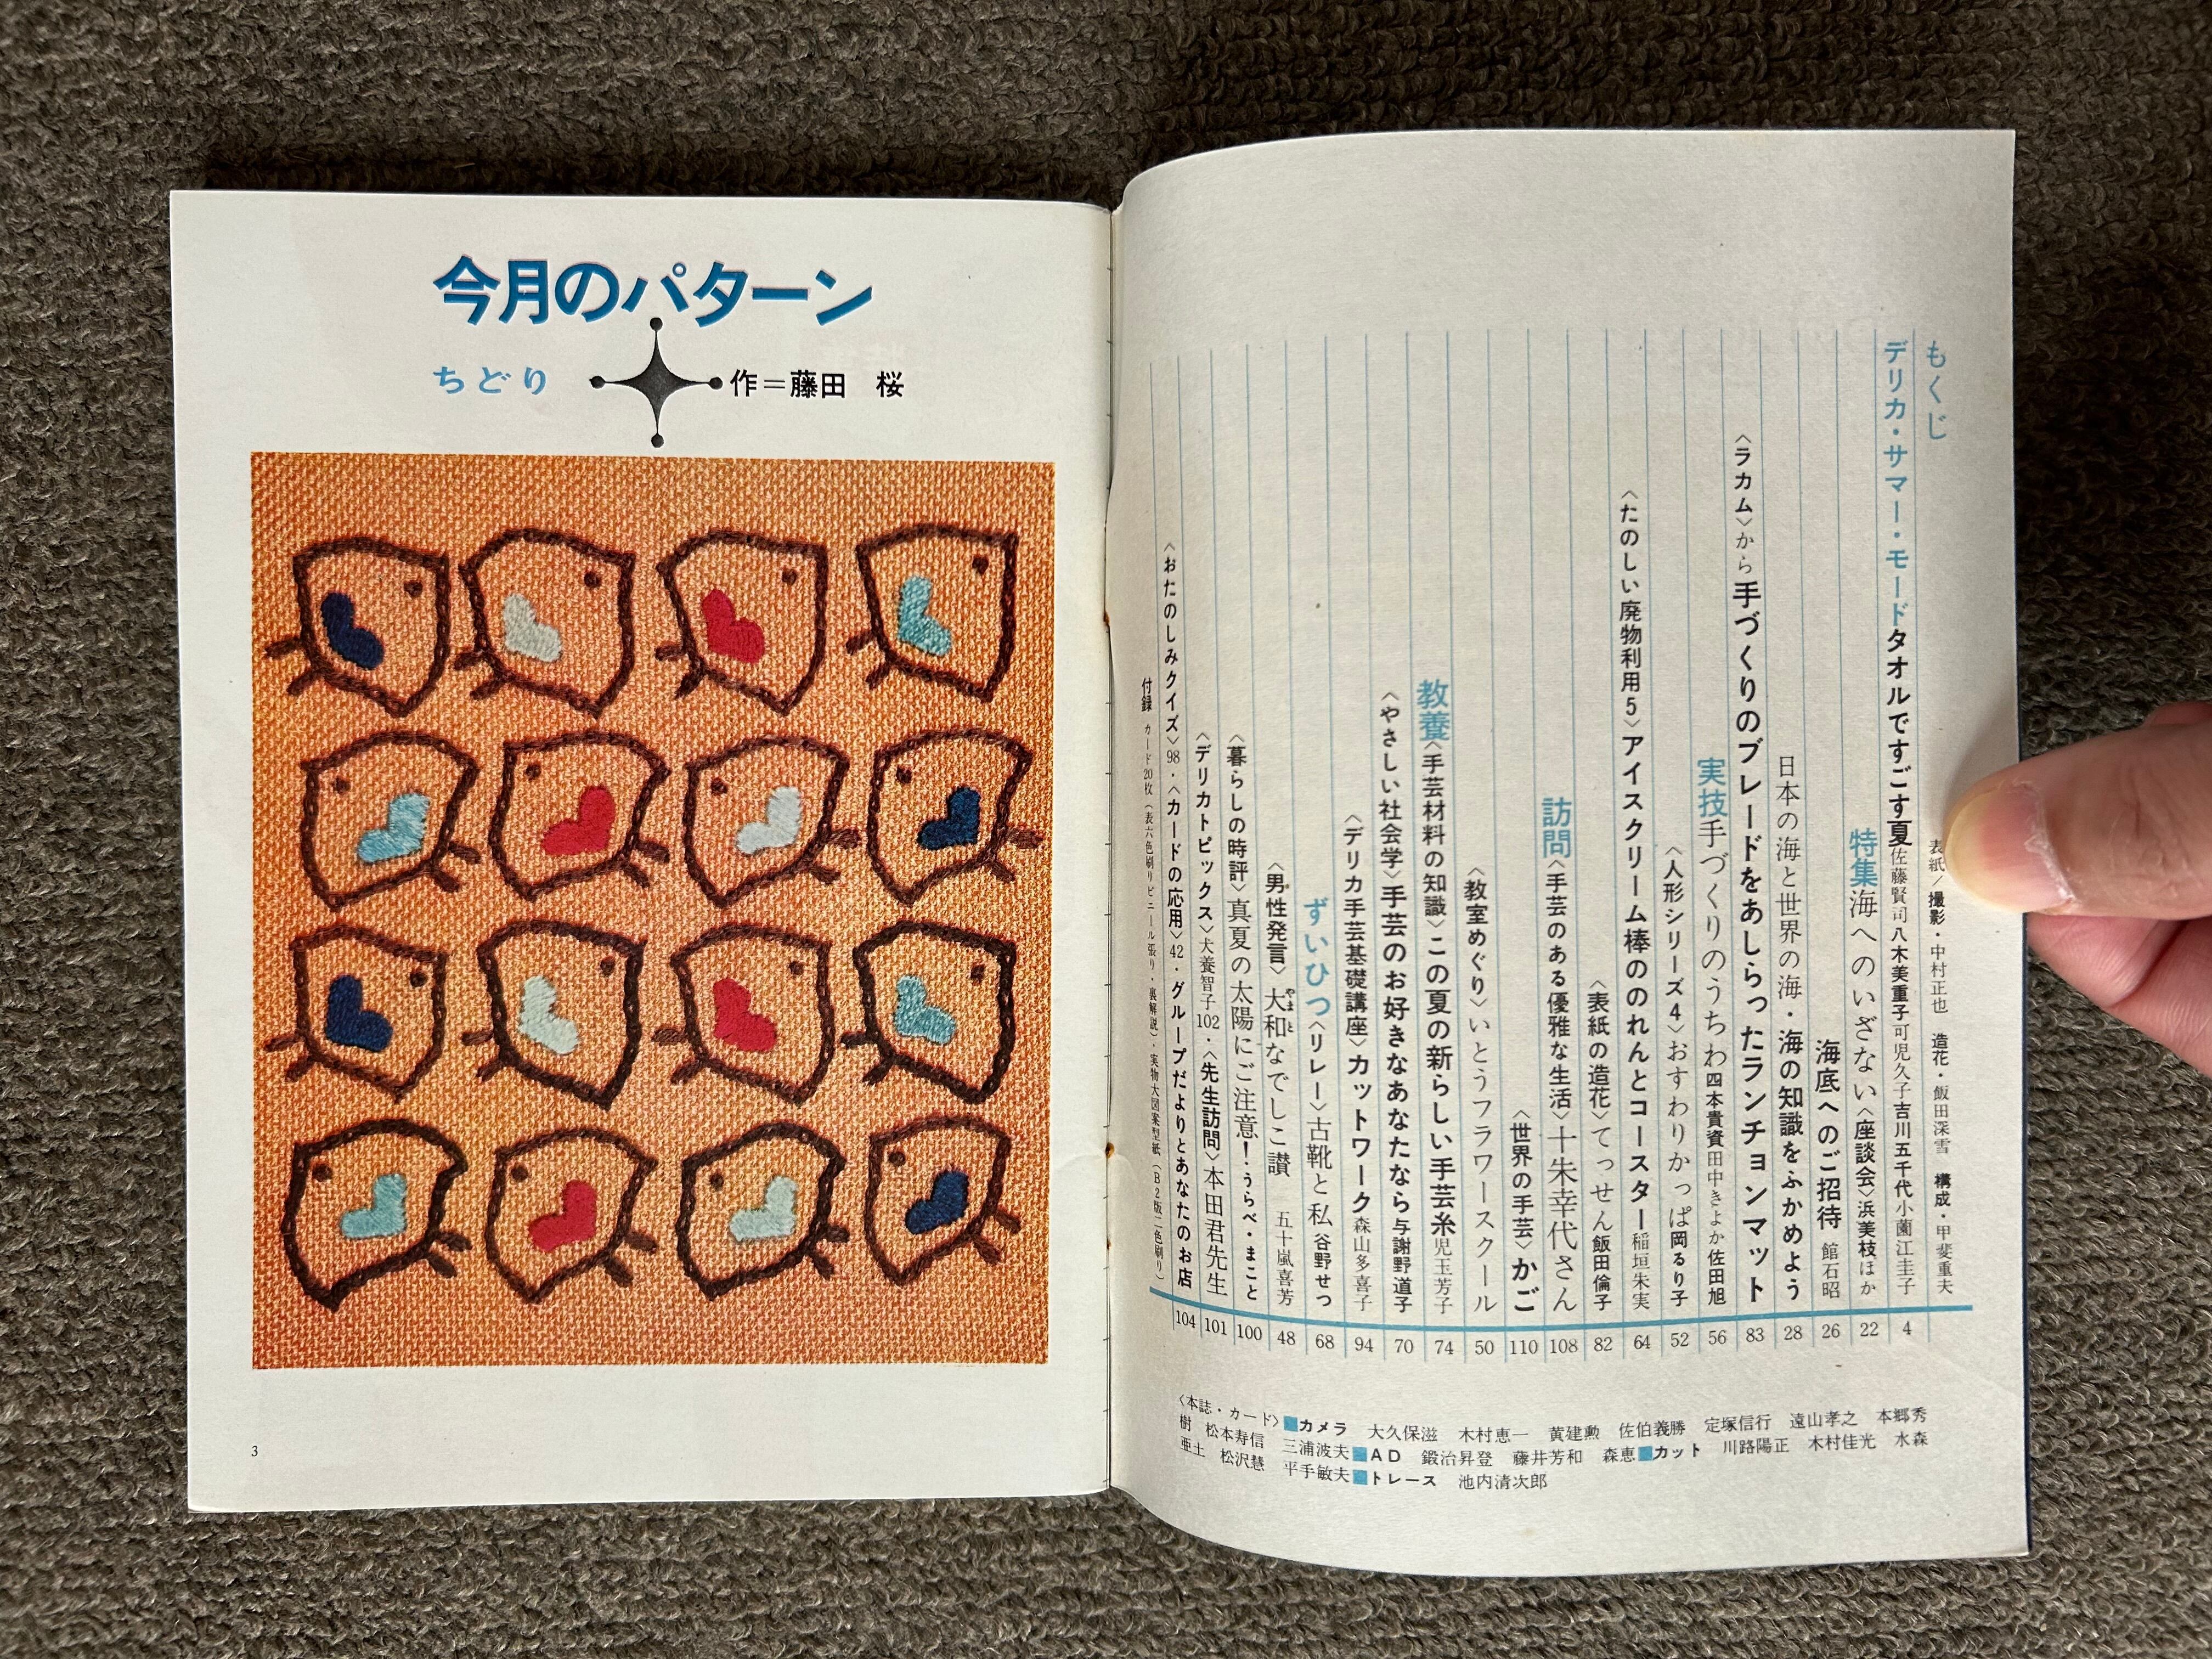 今月のパターン
ちどり
作＝藤田 桜
3
もくじ
表紙／撮影・中村正也 造花・飯田深雪 構成・甲斐重夫
デリカ・サマー・モードタオルですごす夏佐藤賢司 八木美重子 可児久子 吉川五千代 小薗江圭子 4
特集海へのいざない〈座談会〉浜美枝ほか 22
海底へのご招待 館石昭 26
日本の海と世界の海・海の知識をふかめよう 28
〈ラカム〉から手づくりのブレードをあしらったランチョンマット 83
実技手づくりのうちわ四本貴資 田中きよか 佐田旭 56
〈人形シリーズ4〉おすわりかっぱ岡るり子 52
〈たのしい廃物利用5〉アイスクリーム棒ののれんとコースター稲垣朱実 64
〈表紙の造花〉てっせん飯田倫子 82
訪問〈手芸のある優雅な生活〉十朱幸代さん 108
〈世界の手芸〉かご 110
〈教室めぐり〉いとうフラワースクール 50
教養〈手芸材料の知識〉この夏の新らしい手芸糸児玉芳子 74
〈やさしい社会学〉手芸のお好きなあなたなら与謝野道子 70
〈デリカ手芸基礎講座〉カットワーク森山多喜子 94
ずいひつ〈リレー〉古靴と私 谷野せつ 68
〈男性発言〉大和なでしこ讃 五十嵐喜芳 48
やまと
〈暮らしの時評〉真夏の太陽にご注意！うらべ・まこと 100
〈デリカトピックス〉犬養智子102・〈先生訪問〉本田君先生 101
〈おたのしみクイズ〉98・〈カードの応用〉42・グループだよりとあなたのお店 104
付録 カード20枚（表六色刷りビニール張り・裏解説）・実物大図案型紙（B2版二色刷り）
〈本誌・カード〉■カメラ 大久保滋 木村恵一 黄建勲 佐伯義勝 定塚信行 遠山孝之 本郷秀
樹 松本寿信 三浦波夫■AD 鍛治昇登 藤井芳和 森恵■カット 川路陽正 木村佳光 水森
亜土 松沢慧 平手敏夫■トレース 池内清次郎